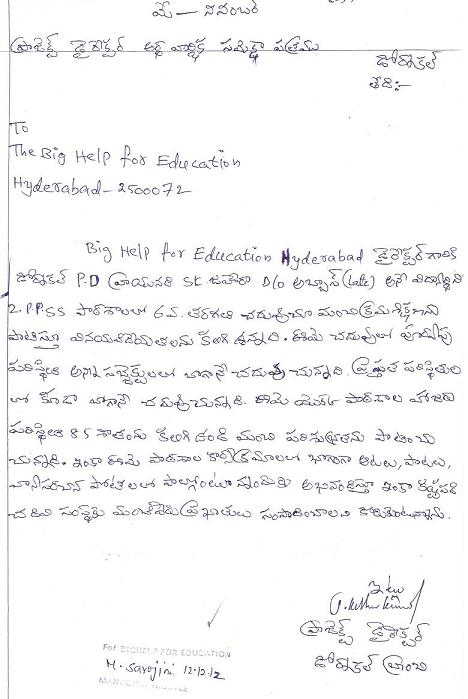 మే - నవంబర్
ప్రాజెక్ట్ డైరెక్టర్ అర్థ వార్షిక సమీక్షా పత్రము
డోర్నకల్
తేది:-
To
The Big Help for Education
Hyderabad-2500072
Big Help for Education Hyderabad డైరెక్టర్ గారికి
డోర్నకల్ P.D వ్రాయునది SK D/o అబ్బాస్ (Late) అనే విద్యార్థిని
Z.P.P.SS పాఠశాలలో 6వ తరగతి చదువుచూ మంచి క్రమశిక్షణను
పాటిస్తూ వినయవిధేయతలను కలిగి ఉన్నది. ఈమె చదువులో
పరిస్థితి అన్ని సబ్జెక్టులలో బాగానే చదువు చున్నది. ప్రస్తుత పరిస్థితుల
లో కూడా బాగానే చదువుచున్నది. ఈమె యొక్క పాఠశాల హాజరు
పరిస్థితి 85 శాతంగా కలిగి ఉండి మంచి పరిశుభ్రతను పాటించు
చున్నది. ఇంకా ఈమె పాఠశాల కార్యక్రమాలలో భాగంగా ఆటలు, పాటలు,
పోటీలలో పాల్గొంటూ అందుకు అభినందిస్తూ ఇంకా కష్టపడి
చదివి సంస్థకు మంచిపేరు ప్రఖ్యాతులు సంపాదించాలని కోరుకుంటున్నాను.
ఇట్లు
ప్రాజెక్ట్ డైరెక్టర్
డోర్నకల్ బ్రాంచి
For BIGHELP FOR EDUCATION
M. Sarojini 12.12.12
MANAGING TRUSTEE